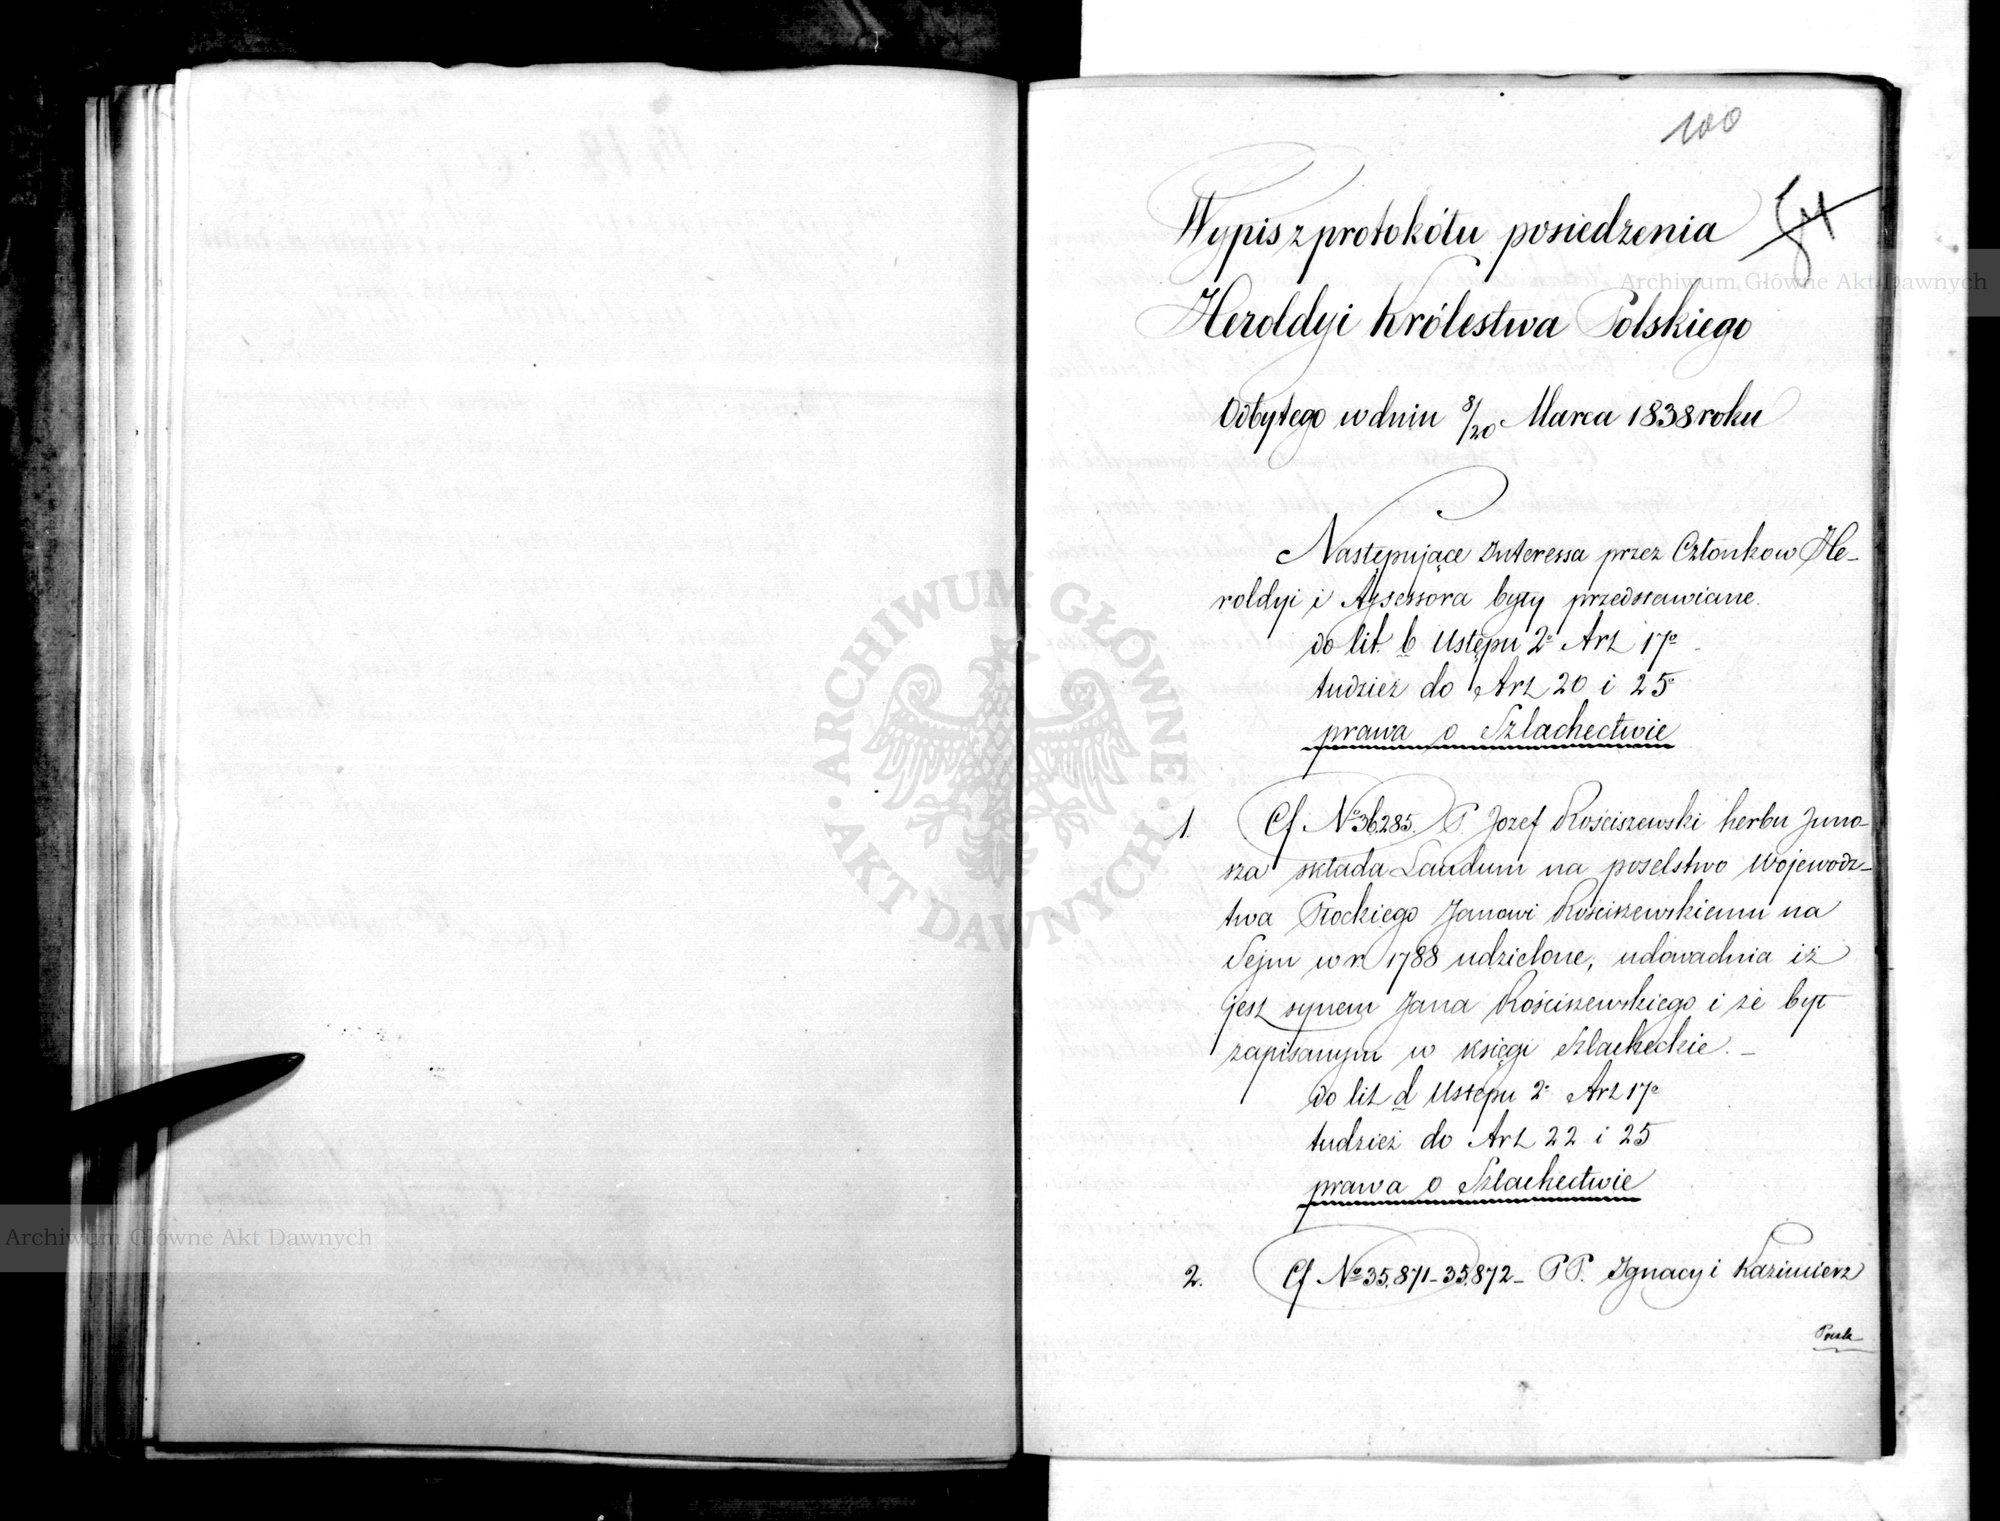 100
Wypis z protokółu posiedzenia
Heroldyi Królestwa Polskiego
Odbytego w dniu 8/20 Marca 1838 roku
Następujące Interessa przez Członkow He-
roldyi i Assessora były przedstawiane.
do lit. b Ustępu 2º Art 17º
tudzież do Art 20 i 25º
prawa o Szlachectwie
1. Cf. Nº 36,285. P. Jozef Kościszewski herbu Juno-
sza składa Laudum na poselstwo Wojewodz-
twa Płockiego Janowi Kościszewskiemu na
Sejm w r. 1788 udzielone, udowadnia iż
jest synem Jana Kościszewskiego i że był
zapisanym w księgi szlacheckie. -
do lit d Ustępu 2º Art 17º
tudzież do Art 22 i 25
prawa o Szlachectwie
2. Cf Nº 35,871-35,872- PP. Ignacy i Kazimierz
ARCHIWUM GŁÓWNE · AKT DAWNYCH ·
Archiwum Główne Akt Dawnych
Archiwum Główne Akt Dawnych